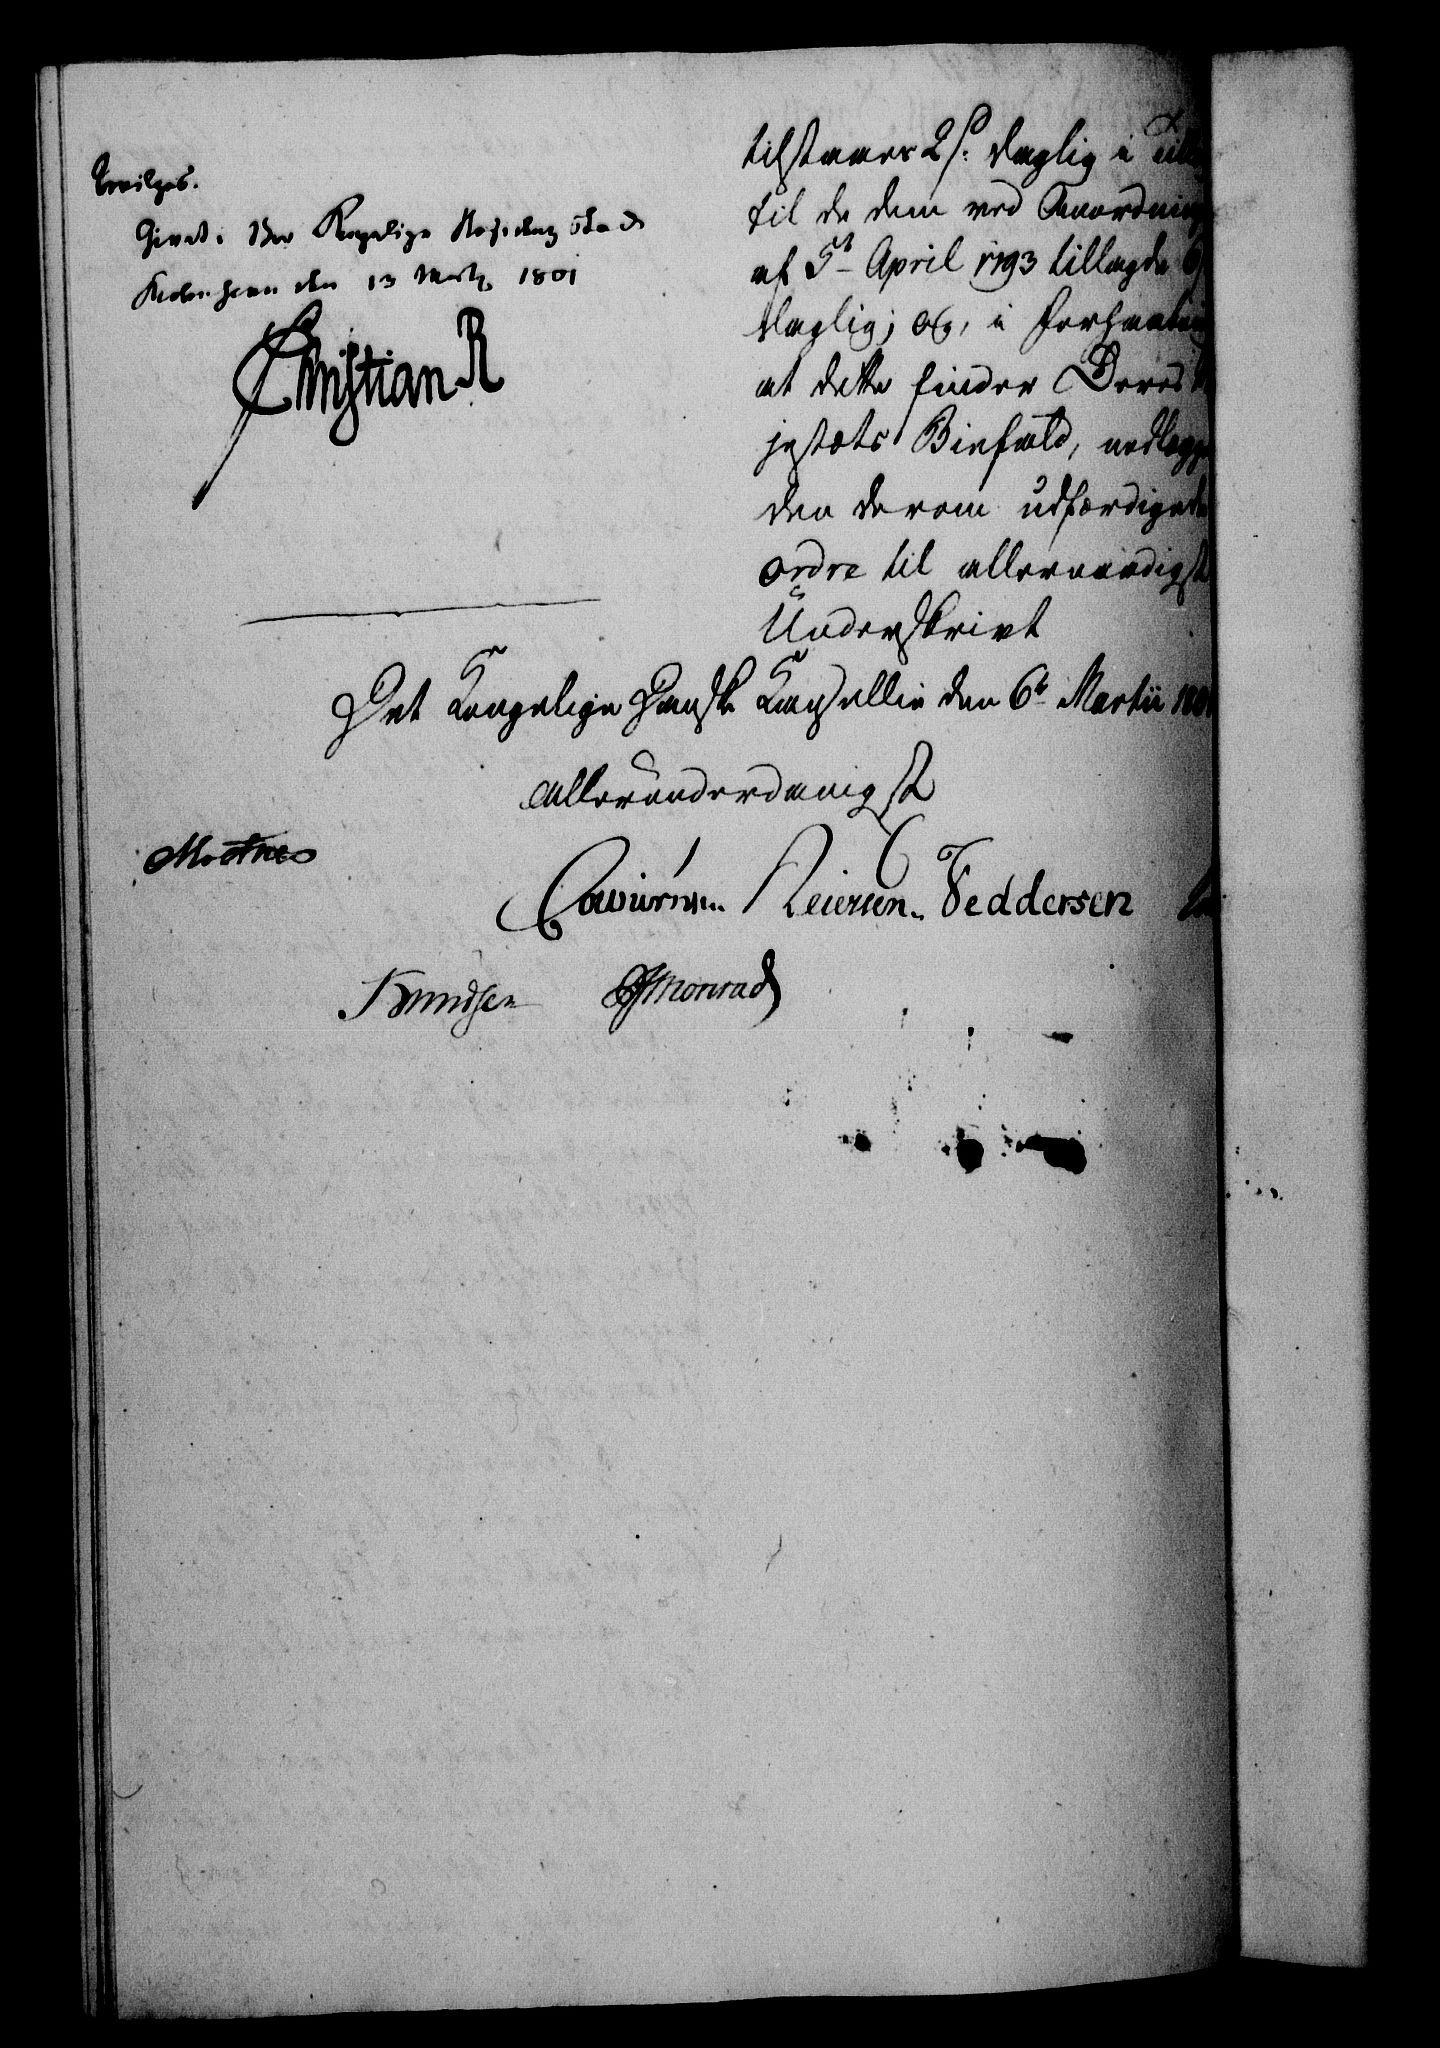 bevilges.
Givet i Vor Kongelige Residenz Stad
Kiøbenhavn den 13 Martz 1801
Christian R
tilstaaes 2 s: daglig i
til de dem ved Anordning
af 5t April 1793 tillagde 6
daglig; og, i Forhaabning
at dette finder Deres
jestæts Biefald, nedlægge
den derom udfærdigede
Ordre til allernaadigst
Underskrivt
Det Kongelige Danske Kancellie den 6t Martii 180
allerunderdanigst
Moestue
Cowurn Reiersen Feddersen
Knudsen Monrad